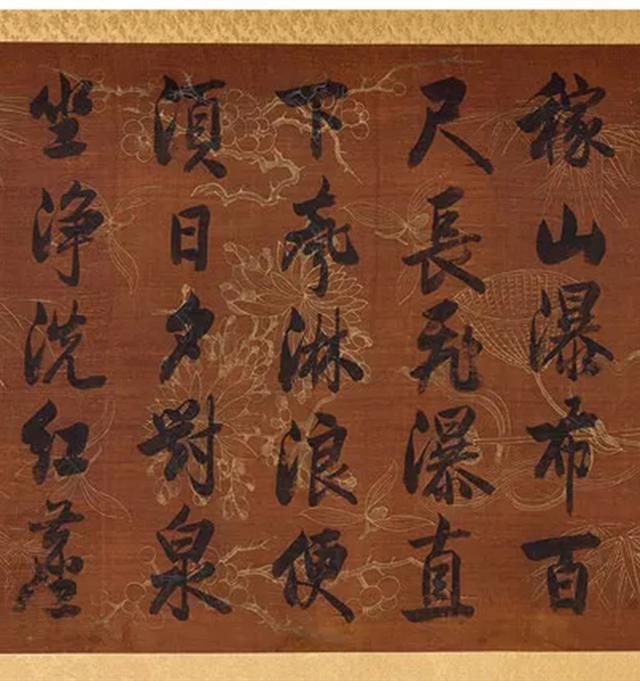 稼山瀑布百
尺長飛瀑直
下氣淋浪便
須日夕對泉
坐淨洗紅塵